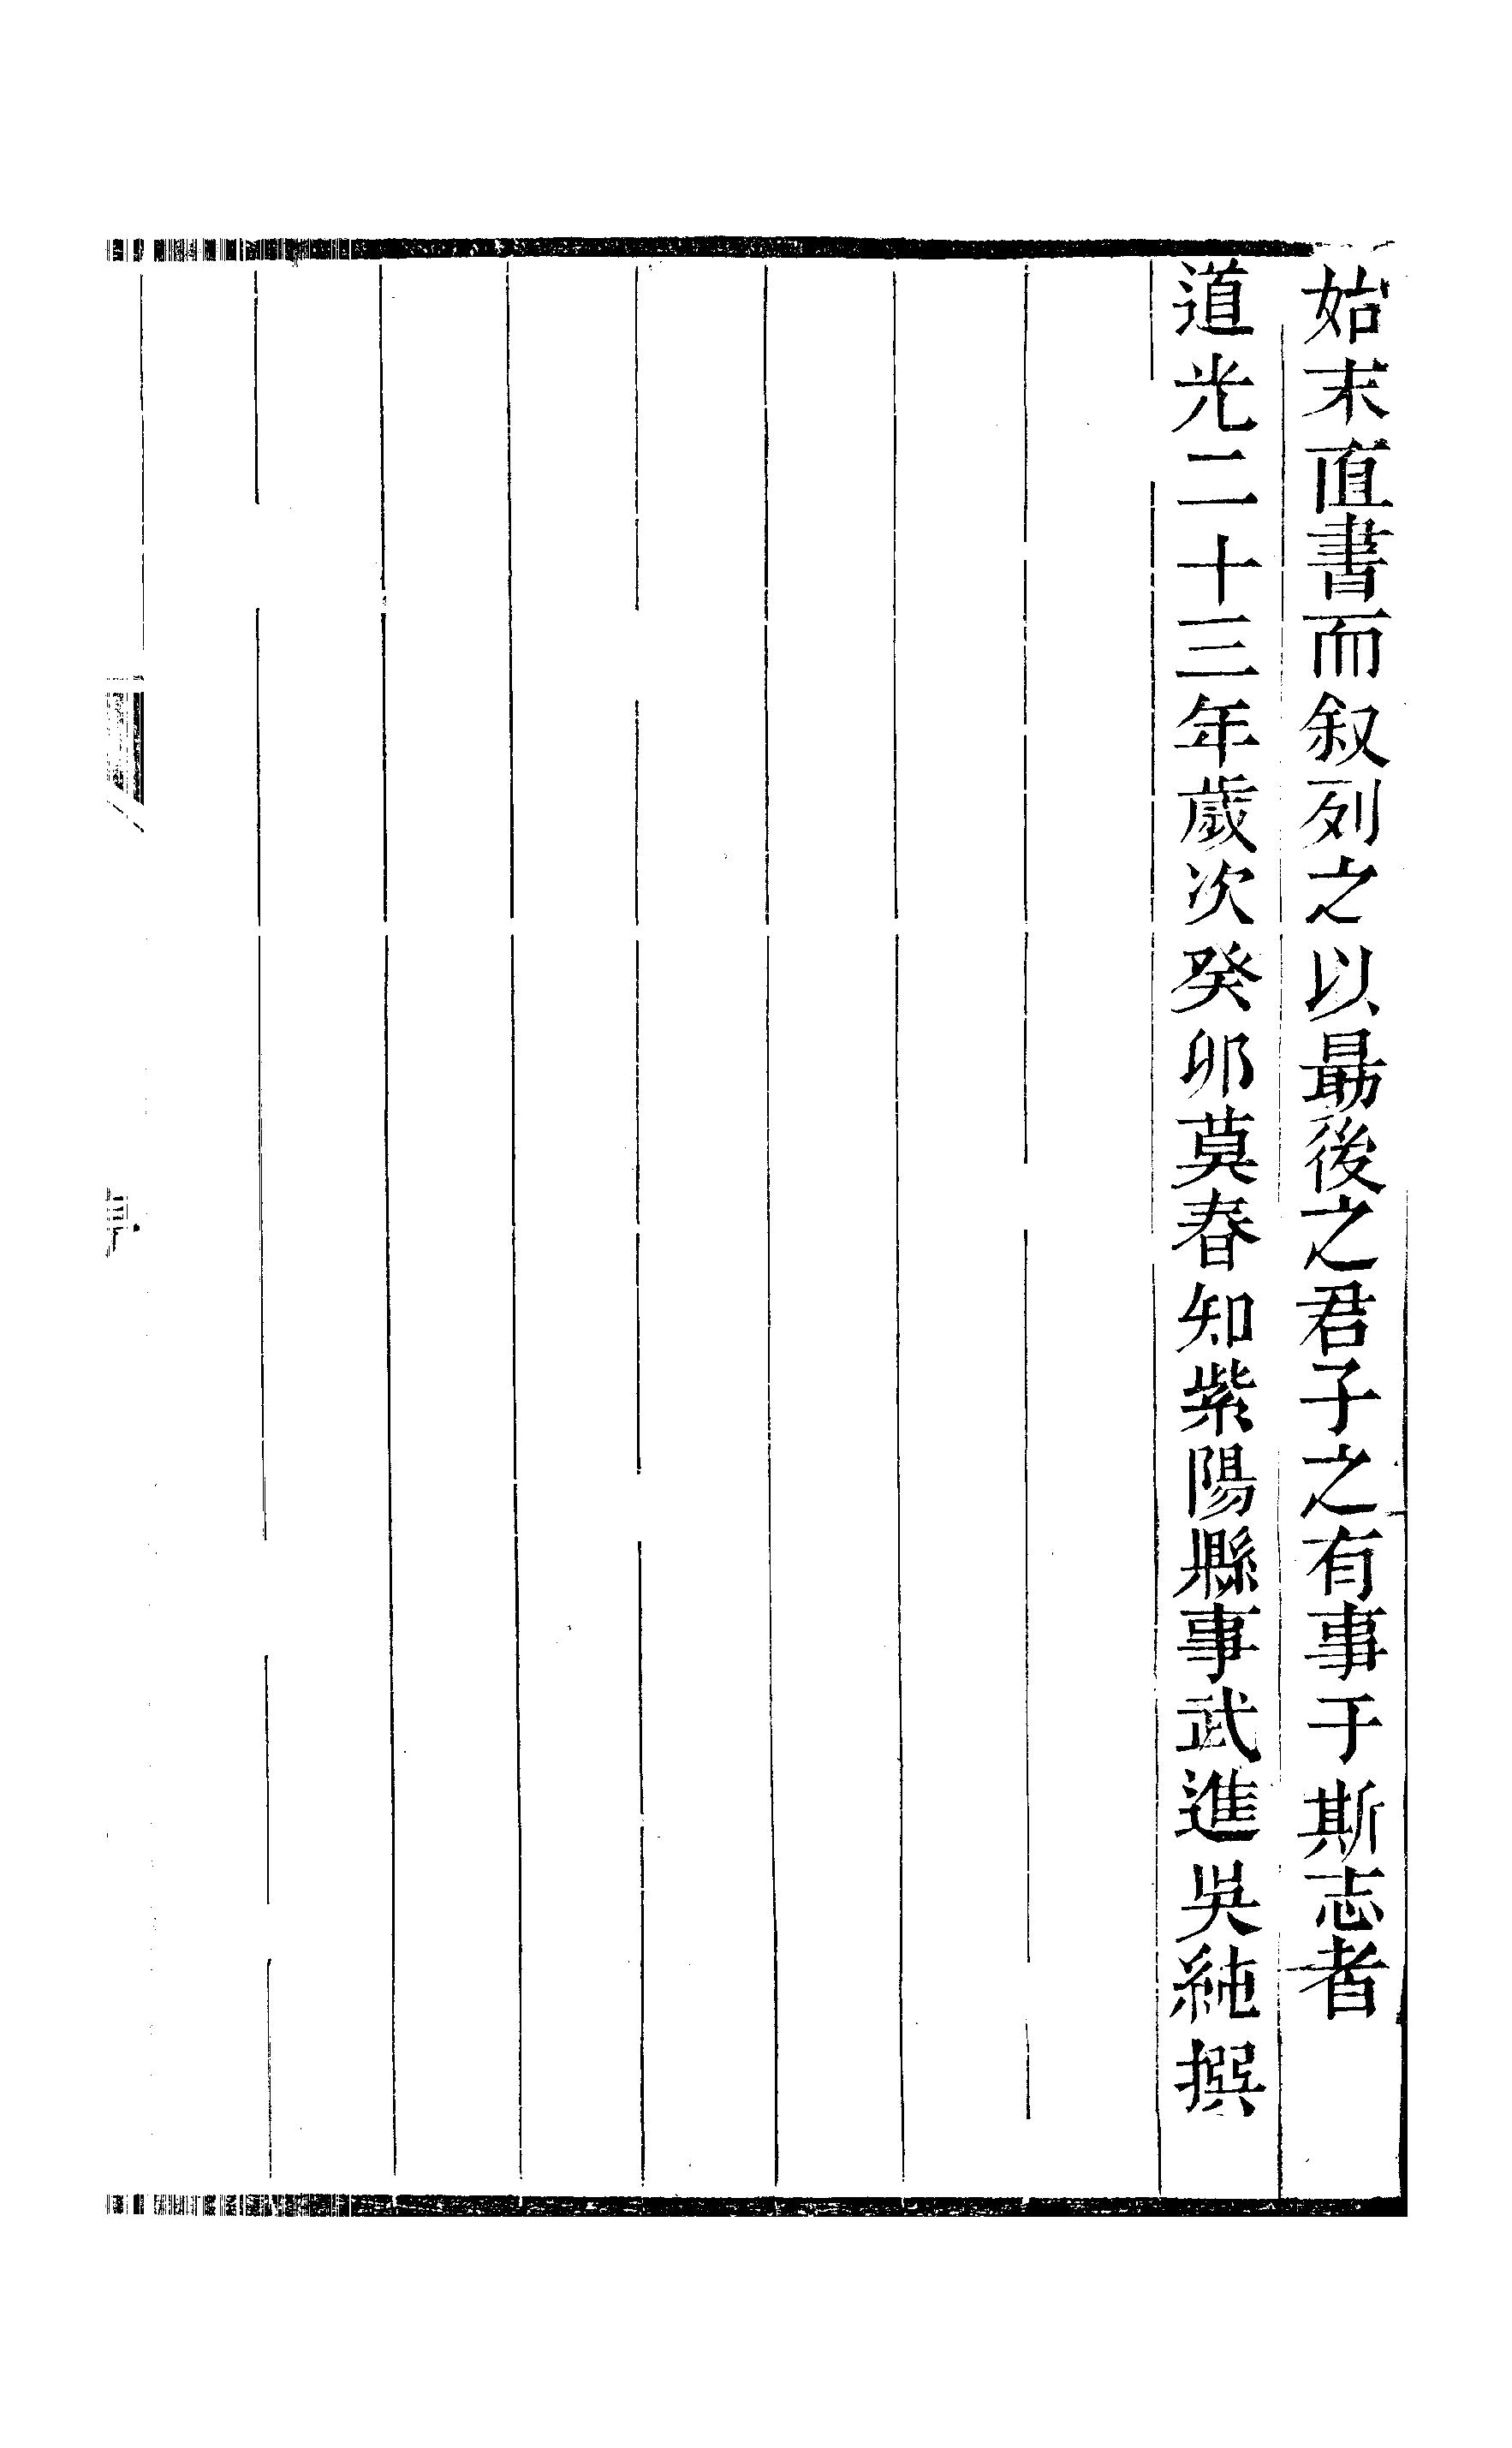 始末直書而叙列之以勗後之君子之有事于斯志者
道光二十三年歲次癸卯莫春知紫陽縣事武進吳純撰